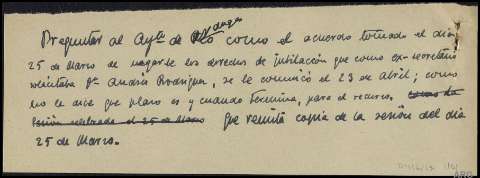 Preguntar al Aytº de como el acuerdo tomado el dia
25 de Marzo de negarle los derechos de jubilación que como ex-secretario
solicitaba Dn Andrés Rodríguez, se le comunicó el 23 de Abril; como
no le dice que plazo es y cuando termina, para el recurso.
sesión celebrada el 25 de Marzo Que remita copia de la sesión del dia
25 de Marzo.